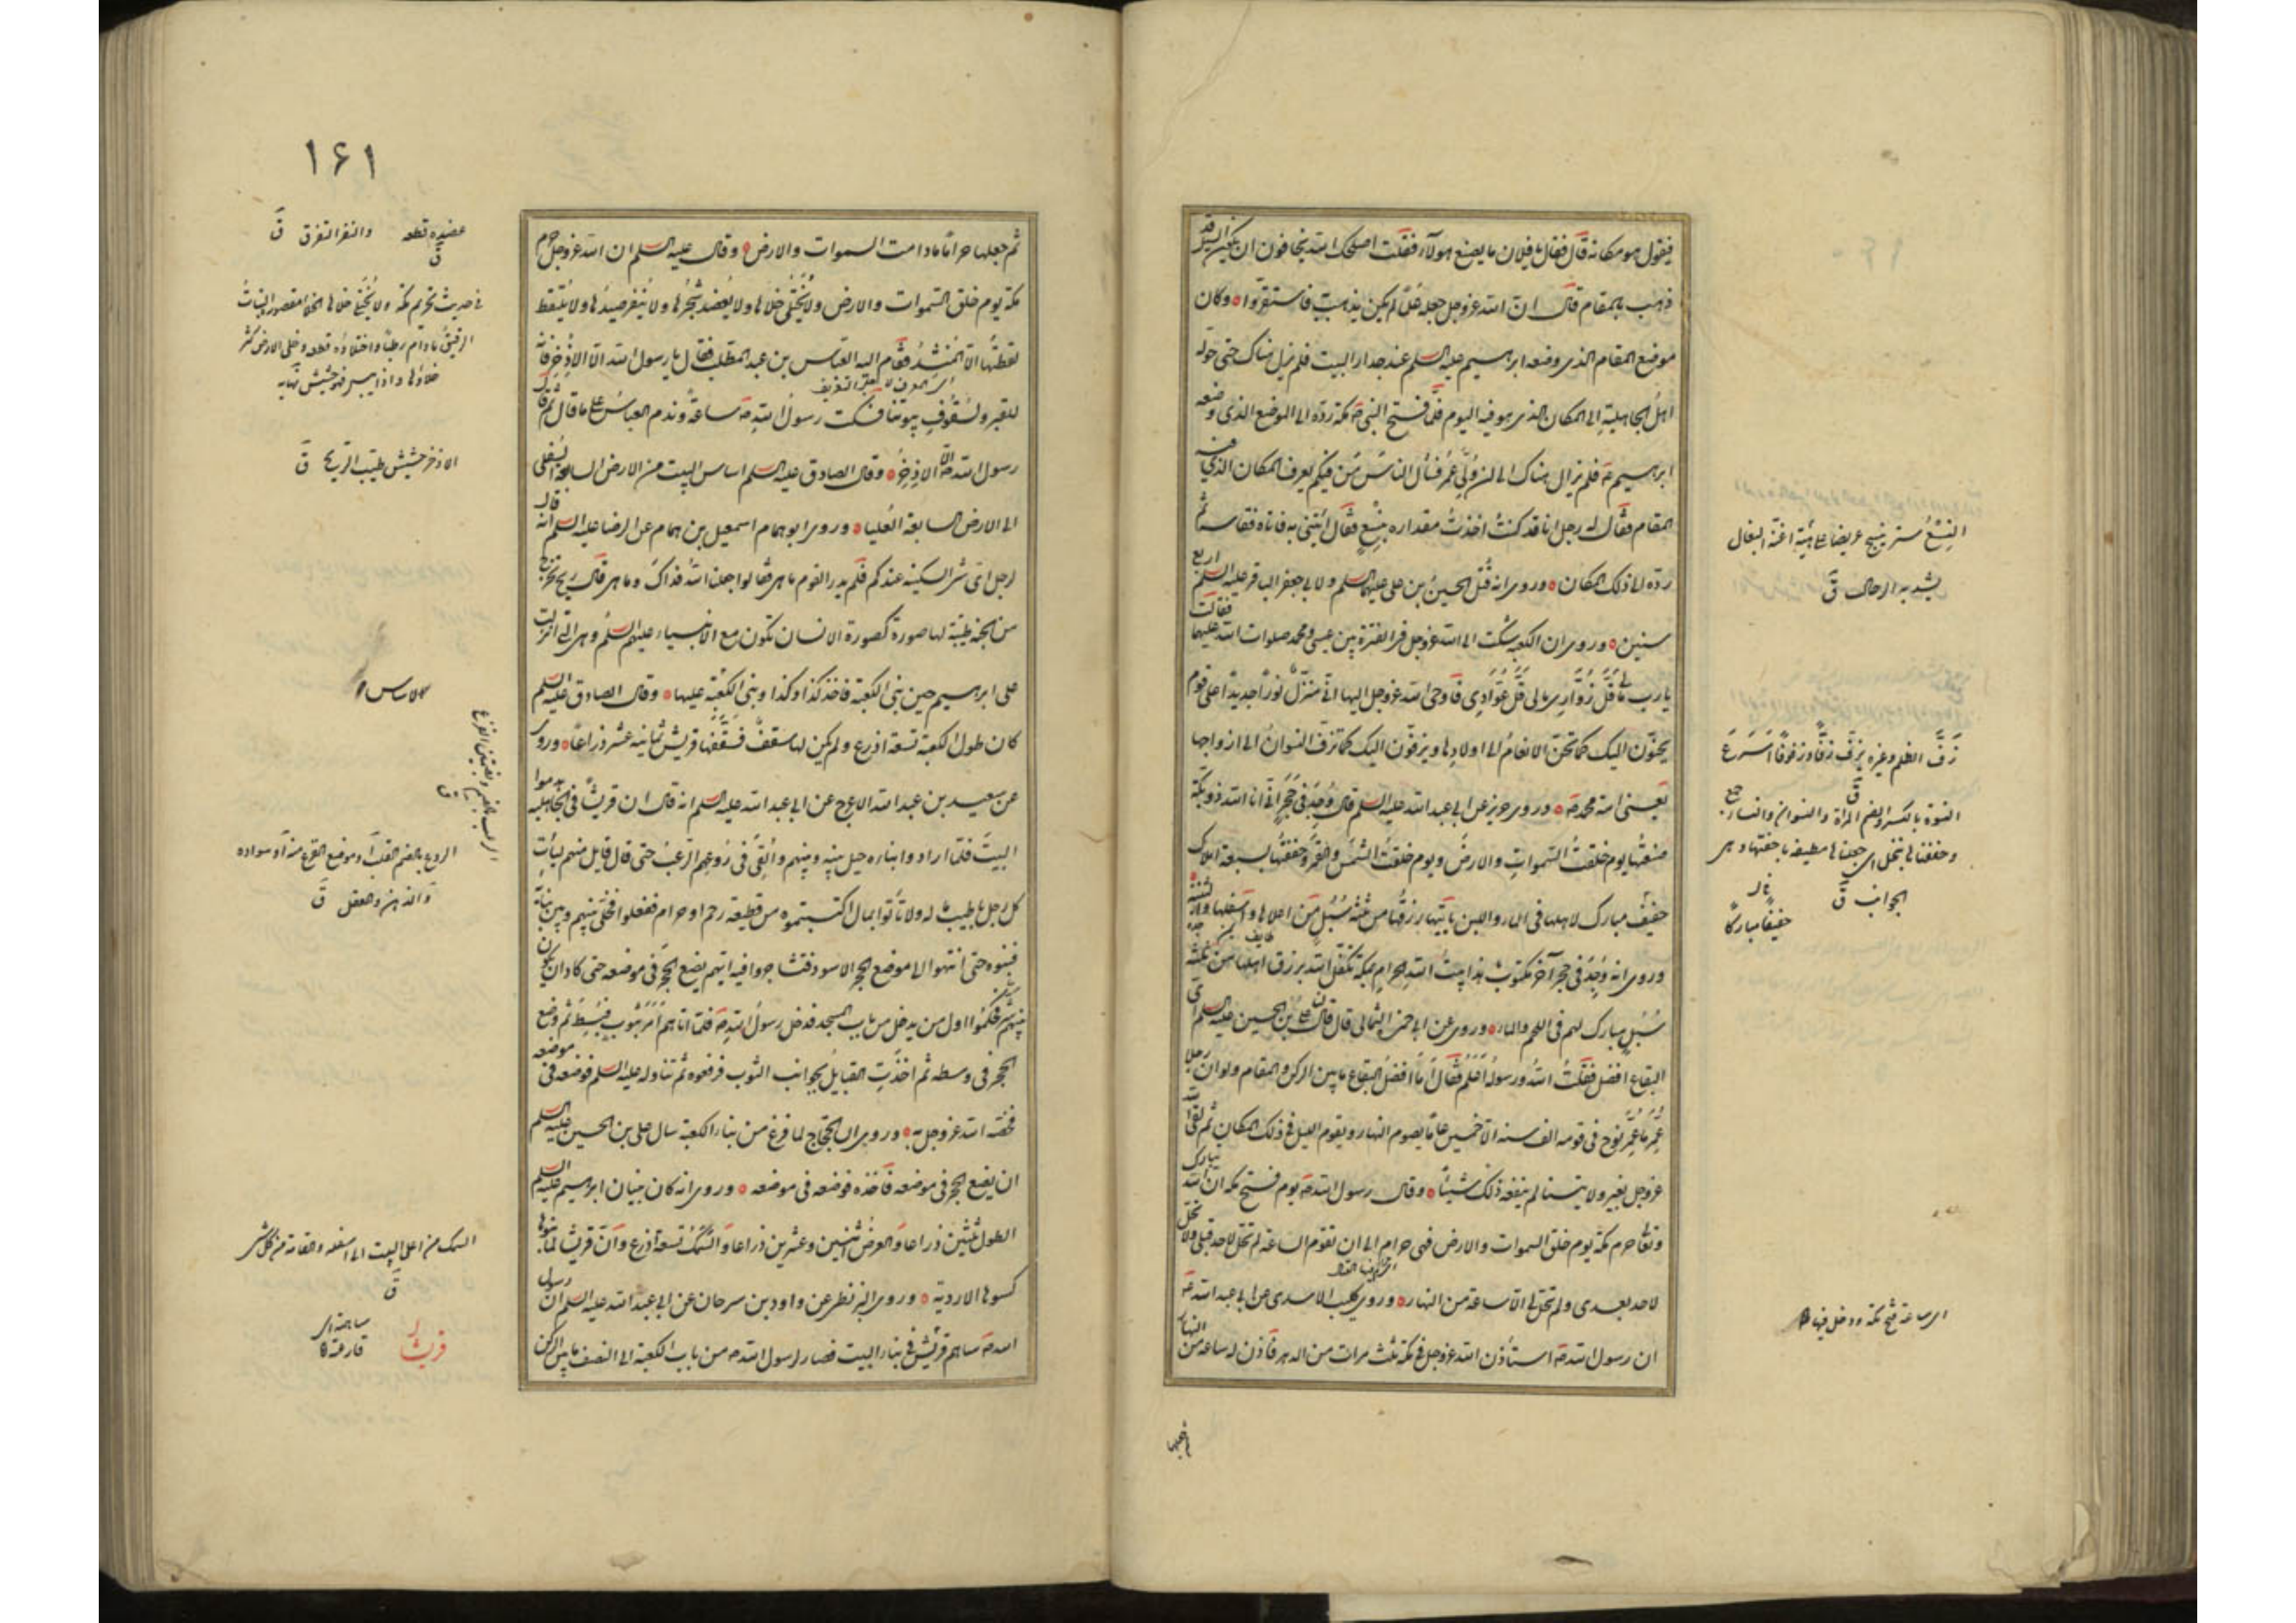 فيقول هو مكانه قال فقال يا فلان ما يصنع هولاء فقلت اصلحك الله يخافون ان يكون السيل قد
ذهب بالمقام قال ان الله عزوجل جعله علما لم يكن يذهب به فاستقروا وكان
موضع المقام الذى وضعه ابرهيم عليه السلم عند جدار البيت فلم يزل هناك حتى حوله
اهل الجاهلية الى المكان الذى هو فيه اليوم فلما فتح النبى مكة رده الى الموضع الذى وضعه
ابرهيم فلم يزل هناك الى ان ولى عمر فسأل الناس من فيكم يعرف المكان الذى فيه
المقام فقال له رجل انا قد كنت اخذت مقداره بنسع فقال ائتنى به فاتاه فقاسه ثم
رده الى ذلك المكان وروى انه قتل الحسين بن على عليهما السلم ولابى جعفر الباقر عليه السلم اربع
سنين وروى ان الكعبة شكت الى الله عزوجل فى الفترة بين عيسى ومحمد صلوات الله عليهما فقالت
يا رب ما لى قل زوارى ما لى قل عوادى فاوحى الله عزوجل اليها انى منزل نورا جديدا على قوم
يحنون اليك كما تحن الانعام الى اولادها ويزفون اليك كما تزف النسوان الى ازواجها
يعنى امة محمد وروى حريز عن ابى عبد الله عليه السلم قال وجد فى حجر انى انا الله ذو بكة
صنعتها يوم خلقت السموات والارض ويوم خلقت الشمس والقمر وحففتها بسبعة املاك
حفيف مبارك لاهلها فى الماء واللبن ياتيها رزقها من ثلثة سبل من اعلاها واسفلها والثنية
وروى انه وجد فى حجر آخر مكتوب هذا بيت الله الحرام بمكة تكفل الله برزق اهله من ثلثة
سبل مبارك لهم فى اللحم والماء وروى عن ابى حمزة الثمالى قال قال لى على بن الحسين عليه السلم اى
البقاع افضل فقلت الله ورسوله اعلم فقال اما افضل البقاع ما بين الركن والمقام ولو ان رجلا
عمر ما عمر نوح فى قومه الف سنة الا خمسين عاما يصوم النهار ويقوم الليل فى ذلك المكان ثم لقى الله
عزوجل بغير ولايتنا لم ينفعه ذلك شيئا وقال رسول الله يوم فتح مكة ان الله تبارك
وتعالى حرم مكة يوم خلق السموات والارض فهى حرام الى ان تقوم الساعة لم تحل لاحد قبلى ولا تحل
لاحد بعدى ولم تحل لى الا ساعة من النهار وروى كليب الاسدى عن ابى عبد الله
ان رسول الله استأذن الله عزوجل فى مكة ثلث مرات من الدهر فاذن له ساعة من النهار
ثم جعلها
النسع سير ينسج عريضا على هيئة اعنة البغال
يشد به الرحال ق
زف الظليم وغيره يزف زفا وزفوفا اسرع
ق
النسوة بالكسر والضم المراة والنسوان والنساء جمع
الجوانب ق
حفيفا مباركا
اى ساعة فتح مكة ودخل فيها
١٦١
ثم جعلها حراما ما دامت السموات والارض وقال عليه السلم ان الله عزوجل حرم
مكة يوم خلق السموات والارض ولا يختلى خلاها ولا يعضد شجرها ولا ينفر صيدها ولا يلتقط
لقطتها الا المنشد فقام اليه العباس بن عبد المطلب فقال يا رسول الله الا الاذخر فانه
للقبر ولسقوف بيوتنا فسكت رسول الله ساعة وندم العباس على ما قال ثم قال
رسول الله الا الاذخر وقال الصادق عليه السلم اساس البيت من الارض السابعة السفلى
الى الارض السابعة العليا وروى ابو همام اسمعيل بن همام عن الرضا عليه السلم انه قال
لرجل اى شىء السكينة عندكم فلم يدر القوم ما هى فقالوا جعلنا الله فداك وما هى قال ريح تخرج
من الجنة طيبة لها صورة كصورة الانسان تكون مع الانبياء عليهم السلم وهى التى انزلت
على ابرهيم حين بنى الكعبة فاخذ كذا وكذا وبنى الكعبة عليها وقال الصادق عليه السلم
كان طول الكعبة تسعة اذرع ولم يكن لها سقف فسقفها قريش ثمانية عشر ذراعا وروى
عن سعيد بن عبد الله الاعرج عن ابى عبد الله عليه السلم انه قال ان قريشا فى الجاهلية هدموا
البيت فلما ارادوا بناءه حيل بينه وبينهم والقى فى روعهم الرعب حتى قال قايل منهم ليأت
كل رجل باطيب ماله ولا تأتوا بمال اكتسبتموه من قطيعة رحم او حرام ففعلوا فخلى بينهم وبين بنائه
فبنوه حتى انتهوا الى موضع الحجر الاسود فتشاجروا فيه ايهم يضع الحجر فى موضعه حتى كاد ان يكون
بينهم شر فحكموا اول من يدخل من باب المسجد فدخل رسول الله فلما اتاهم امر بثوب فبسط ثم وضع
الحجر فى وسطه ثم اخذت القبايل بجوانب الثوب فرفعوه ثم تناوله عليه السلم فوضعه فى موضعه
فخصه الله عزوجل به وروى ان الحجاج لما فرغ من بناء الكعبة سال على بن الحسين عليه السلم
ان يضع الحجر فى موضعه فاخذه فوضعه فى موضعه وروى انه كان بنيان ابرهيم عليه السلم
الطول ثلثين ذراعا والعرض اثنين وعشرين ذراعا والسمك تسعة اذرع وان قريشا لما بنوها
كسوها الاردية وروى البزنطى عن داود بن سرحان عن ابى عبد الله عليه السلم ان رسول
الله ساهم قريش فى بناء البيت فصار لرسول الله من باب الكعبة الى النصف ما بين الركن
عضده قطعه والنفر التفرق ق
فى حديث تحريم مكة ولا يختلى خلاها الخلا مقصور النبات
الرقيق ما دام رطبا واختلاؤه قطعه
الاذخر حشيش طيب الريح ق
الاساس
الروع بالضم القلب او موضع الفزع منه او سواده
والذهن والعقل ق
السمك من اعلى البيت الى اسفله والقامة من كل شىء
ق
قريشا
ساهمه اى
قارعه